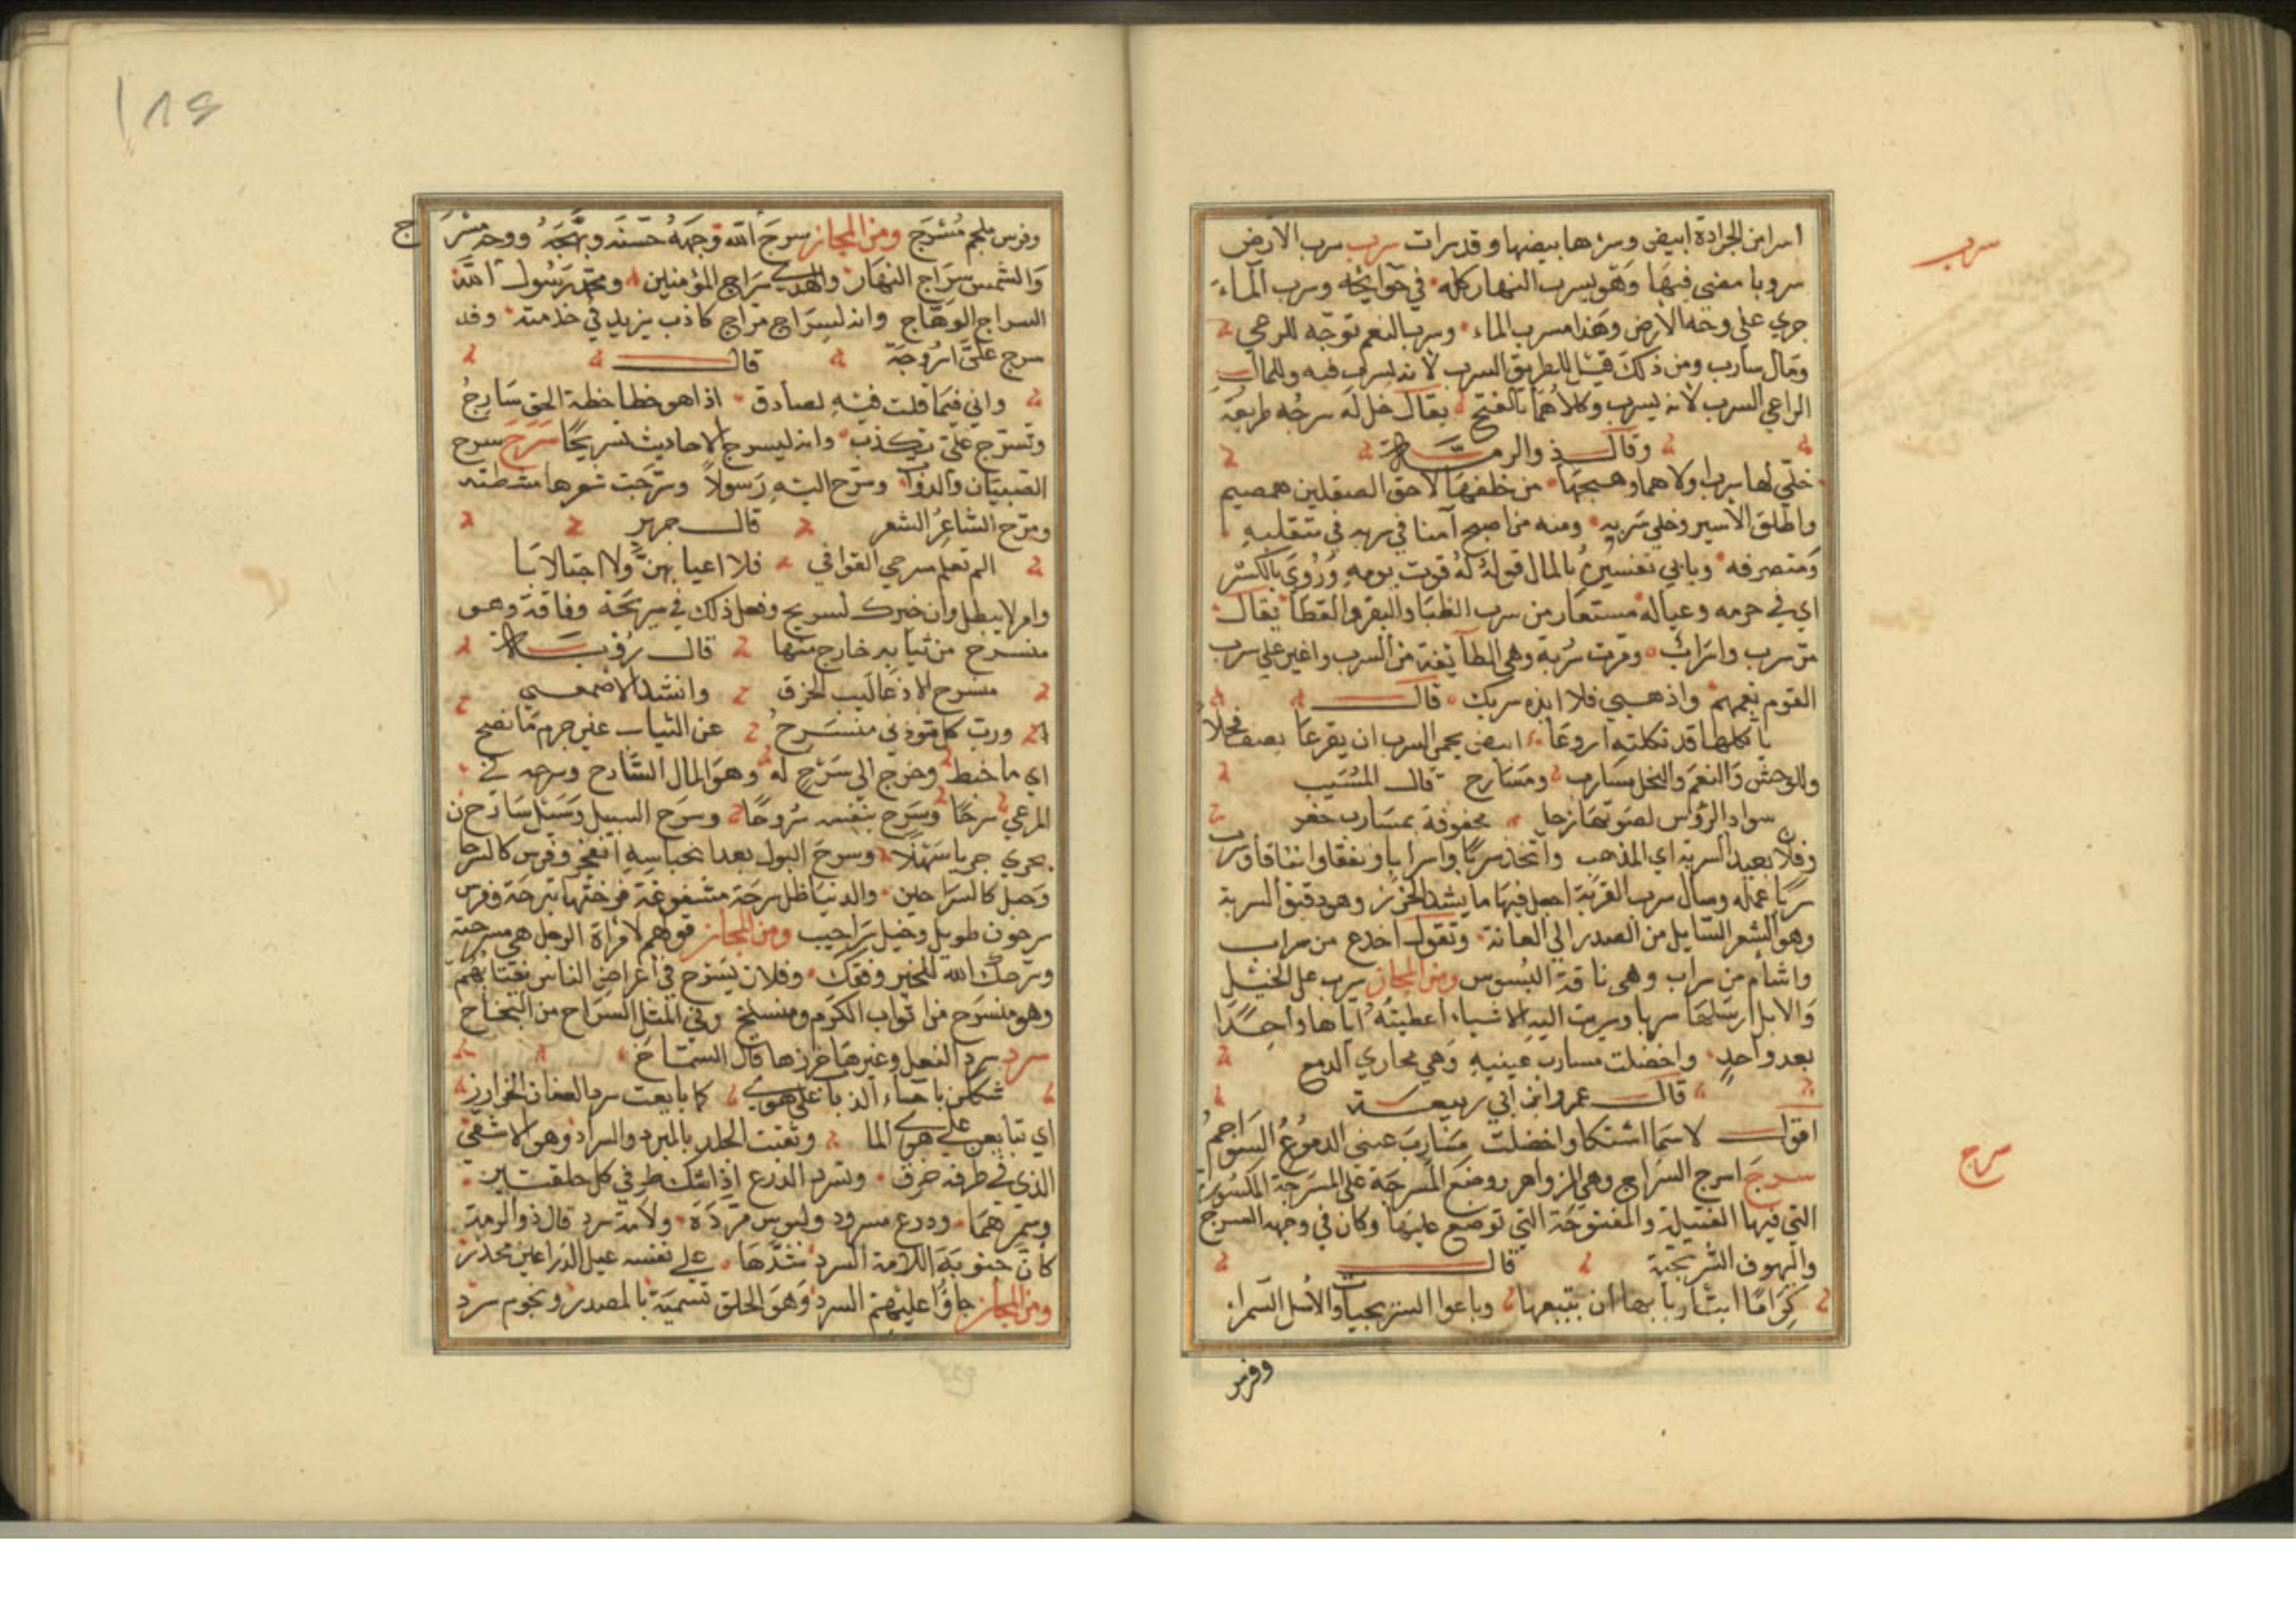 سرب
اسرا من الجرادة ابيض وسرها بيضها وقد سرات سرب سرب الارض
سروبا مضي فيها وهو يسرب النهار كله في حوايجه وسرب الماء
جري علي وجه الارض وهذا مسرب الماء وسرب النعم توجه للرعي
ومال سارب ومن ذلك قيل للطريق السرب لانه يسرب فيه وللمال
الراعي السرب لانه يسرب وكلاهما بالفتح يقال خل له سربه طريقه
وقال ذو الرمة
خلي لها سرب اولاها وهيجها من خلفها لاحق الصقلين همهيم
واطلق الاسير وخلي سربه ومنه من اصبح آمنا في سربه في متقلبه
ومتصرفه ويابي تفسيره بالمال قوله له قوت يومه وروي بالكسر
اي في حرمه وعياله مستعار من سرب الظبا والبقر والقطا يقال
مر سرب واسراب ومرت سربة وهي الطايفة من السرب واغير علي سرب
القوم نعمهم واذهبي فلا انده سربك قال
يا ثكلها قد ثكلته اروعا ابيض يحمي السرب ان يفزعا يصف فحلا
وللوحش والنعم والنحل مسارب ومسارح قال المسيب
سواد الرؤس لصوتها زجل محفوفة بمسارب خضر
وفلان بعيد السربة اي المذهب واتخذ سربا واسرابا ونفقا وانفاقا وسرب
سربا عمله وسال سرب القربة اجعل فيها ما يشد الخرز وهو دقيق السربة
وهو الشعر السايل من الصدر الي العانة وتقول اخدع من سراب
واشام من سراب وهي ناقة البسوس ومن المجاز سرب علي الخيل
والابل ارسلها سربا وسربت اليه الاشياء اعطيته اياها واحدا
بعد واحد واخضلت مسارب عينيه وهي مجاري الدمع
قال عمرو ابن ابي ربيعة
اقول لاسما اشتكا واخضلت مسارب عيني الدموع السواجم
سرج
سرج اسرج السراج وهي الزواهر ووضع المسرجة علي المسرجة المكسورة
التي فيها الفتيلة والمفتوحة التي توضع عليها وكان في وجهه السرج
والسيوف السريجية قال
كراما ابت اربابها ان تبيعها وباعوا السريجيات والاسل السمرا
وفرس
وفرس ملجم مسرج ومن المجاز سرج الله وجهه حسنه وبهجه ووجه مسرج
والشمس سراج النهار والهدي سراج المؤمنين ومحمد رسول الله
السراج الوهاج وانه لسراج مراج كاذب يزيد في حديثه وقد
سرج علي اسروجة قال
واني فيما قلت فيه لصادق اذا هو خطا خطة الحق سارج
وتسرج علي تكذب وانه ليسرج الاحاديث تسريجا سرح سرح
الصبيان والدواب وسرح اليه رسولا وسرحت شعرها مشطته
وسرح الشاعر الشعر قال جرير
الم تعلم مسرحي القوافي فلا اعيا بهن ولا اجتلابا
وامر لا يبطل وان خيرك لسريح وفعل ذلك في سريحة وفاقة وهو
منسرح من ثيابه خارج منها قال رؤبة
منسرح الا ذعاليب الخرق وانشد الاصمعي
ورب كل قوذني منسرح عن الثياب غير جرم ما نصح
اي ما خيط وخرج الي سرح له وهو المال السارح وسرحه في
المرعي سرحا وسرح بنفسه سروحا وسرح السيل وسيل سارح
يجري جريا سهلا وسرح البول بعد احتباسه انفجر وفرس كالسرحان
وخيل كالسراحين والدنيا ظل سرحة مشفوعة فرحتها بترحة وفرس
سرحوب طويل وخيل سراحيب ومن المجاز قولهم لامراة الرجل هي سرحته
وسرحك الله للخير وفقك وفلان يسرح في اعراض الناس يغتابهم
وهو منسرح من اثواب الكرم ومنسلخ وفي المثل السراح من النجاح
سرد سرد النعل وغيرها خرزها قال الشماخ
شككن باحساء الذباب علي هوي كما تابعت سرد العنان الخوارز
اي تتابعن علي هوي الما وثقبت الجلد بالمسرد والسراد وهو الاشفي
الذي في طرفه خرق وتسرد الدرع اذا شك طرفي كل حلقتين
وسمرهما ودرع مسرود ولبوس مسردة ولامة سرد قال ذو الرمة
كان جنوبية اللامة السرد شدها علي نفسه عبل الذراعين مخدر
ومن المجاز جاؤا عليهم السرد وهو الحلق تسمية بالمصدر ونجوم سرد